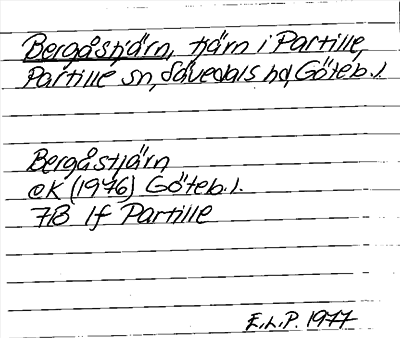 Bergåstjärn, tjärn i Partille,
Partille sn, Sävedals hd, Göteb. l.
Bergåstjärn
eK (1976) Göteb. l.
7B 1f Partille
E.L.P. 1977